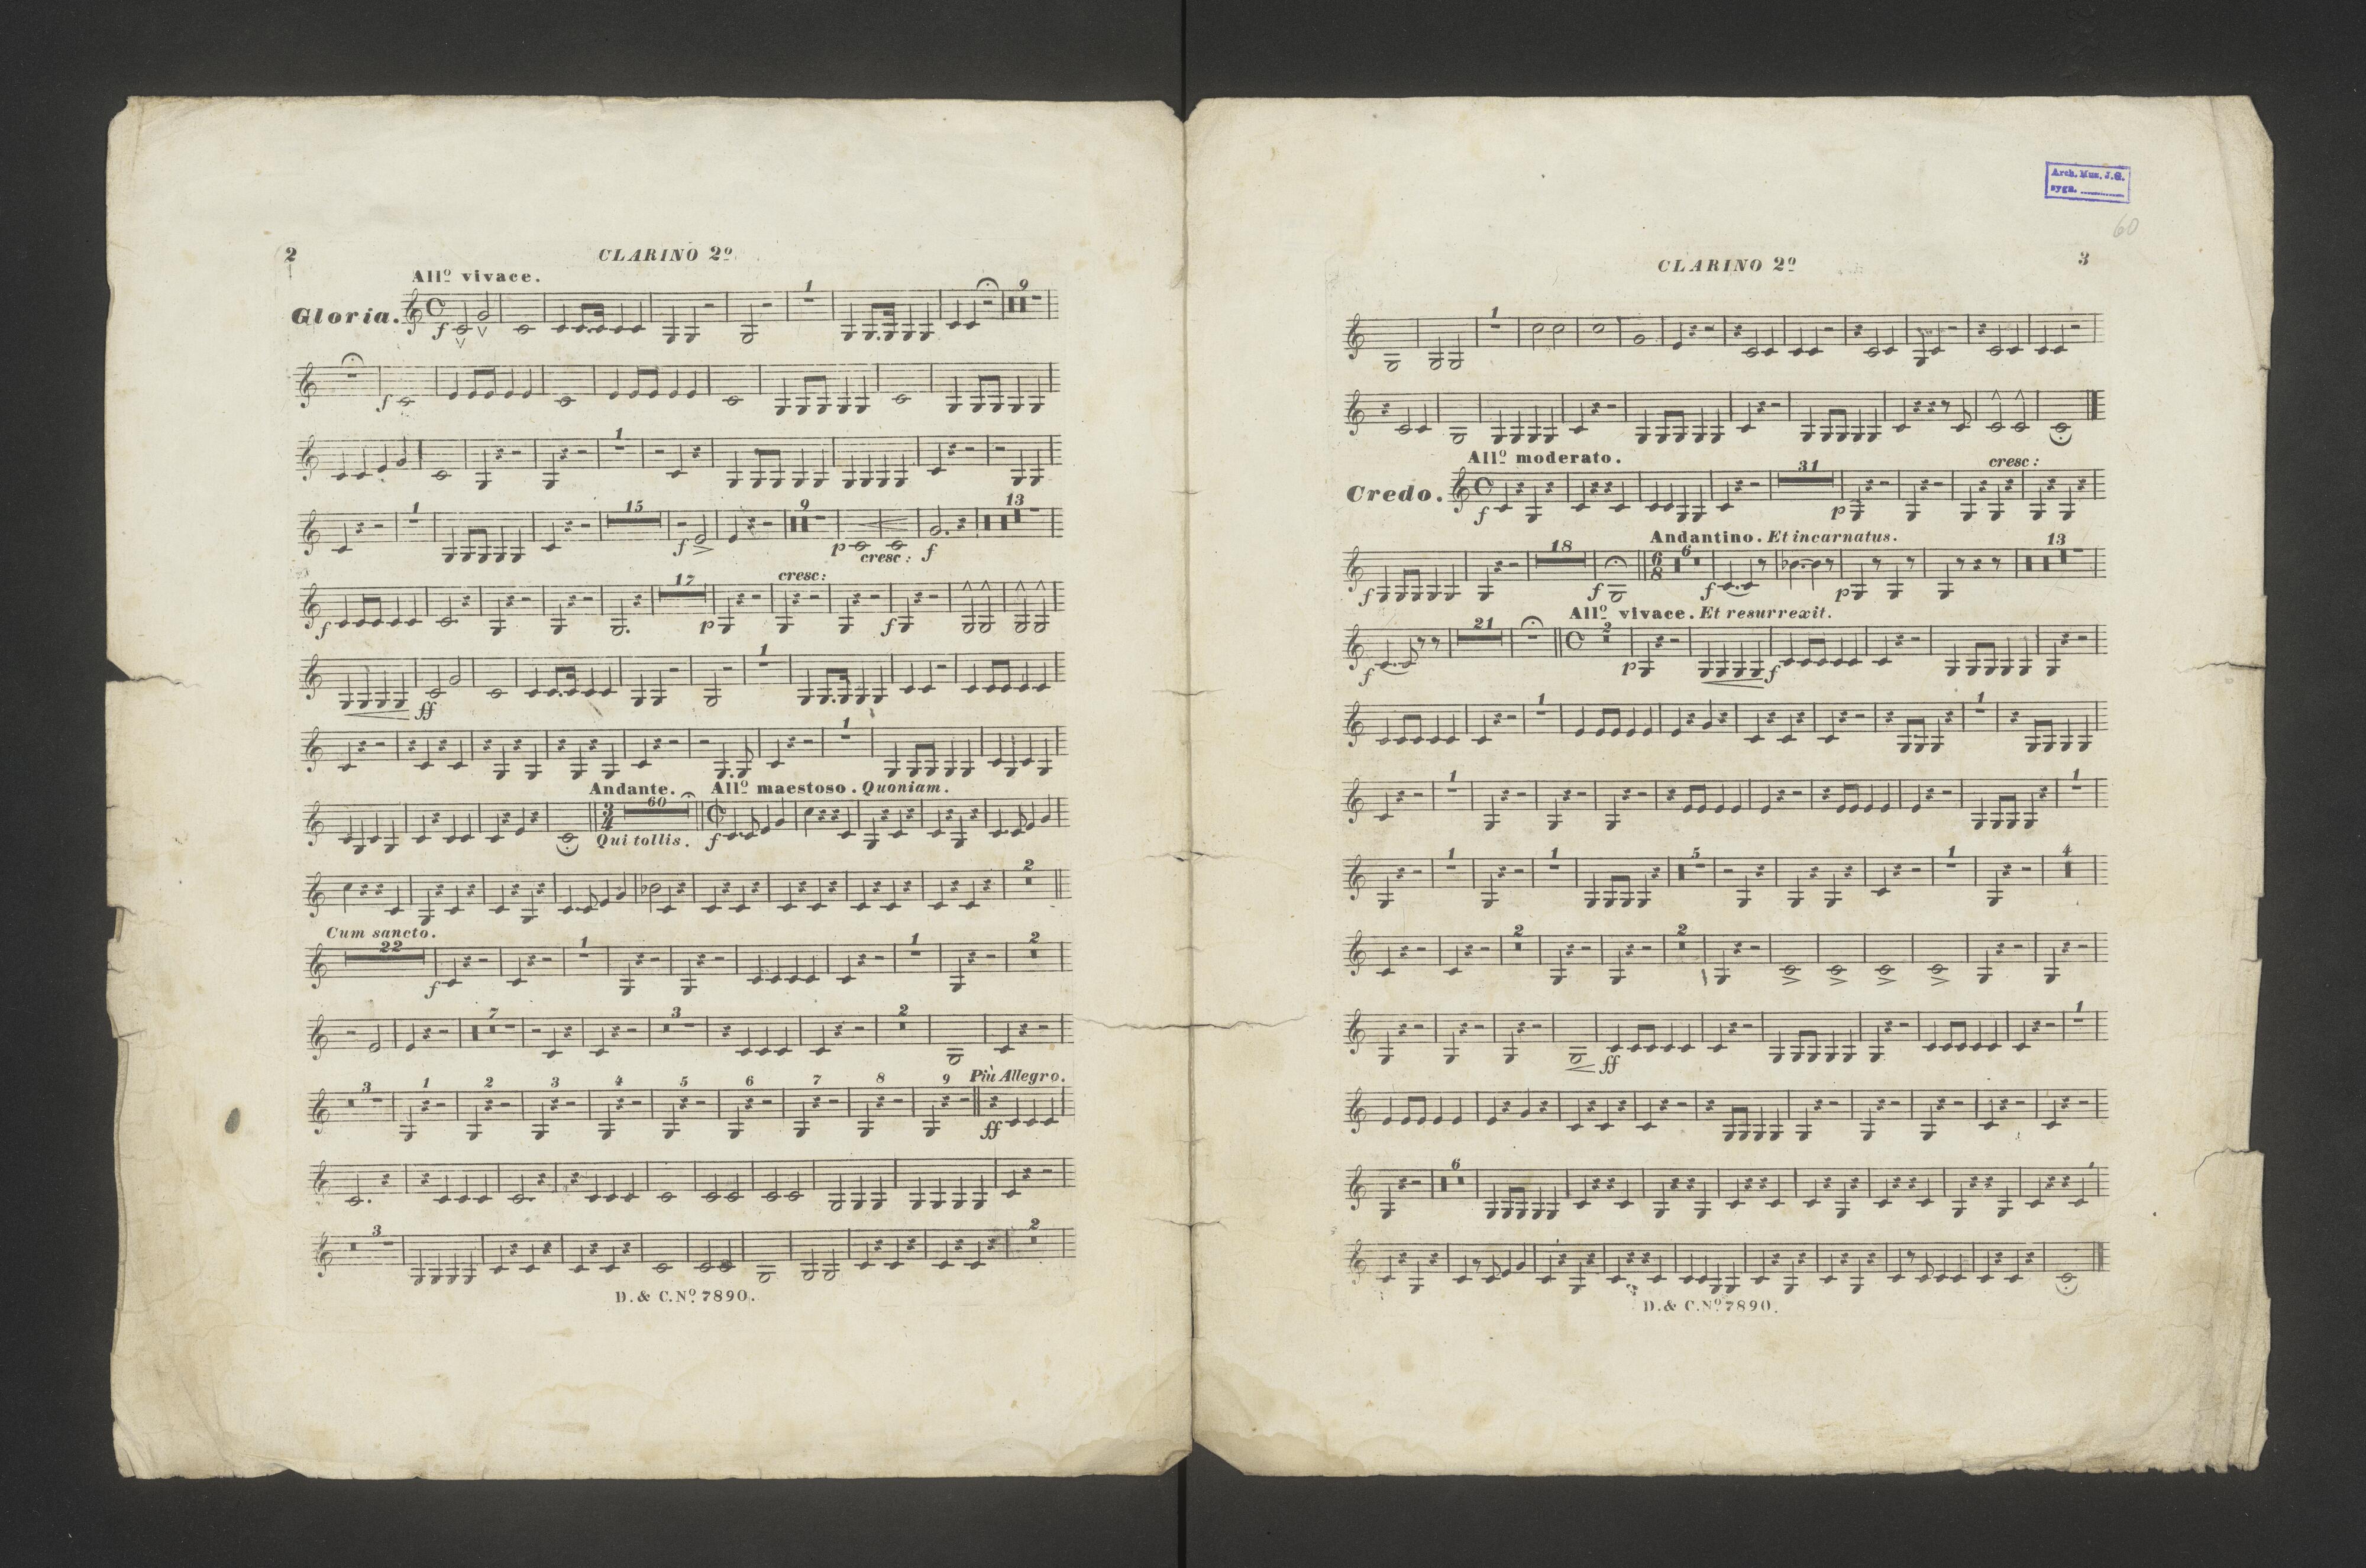 2
CLARINO 2º
Allº vivace.
Gloria.
f
1
9
f
1
1
15
9
13
f
p
cresc:
f
17
cresc:
f
p
f
1
ff
1
Andante.
Allº maestoso. Quoniam.
60
3
4
Qui tollis.
f
2
Cum sancto.
22
1
1
2
f
7
3
2
3
1
2
3
4
5
6
7
8
9
Più Allegro.
ff
3
2
D. & C. Nº 7890.
Arch. Muz. J.G.
sygn.
60
CLARINO 2º
3
1
Allº moderato.
cresc:
Credo.
31
f
p
Andantino. Et incarnatus.
18
6
8
6
13
f
f
f
p
Allº vivace. Et resurrexit.
21
2
f
p
f
1
1
1
1
1
1
5
1
4
2
2
1
ff
6
D. & C. Nº 7890.